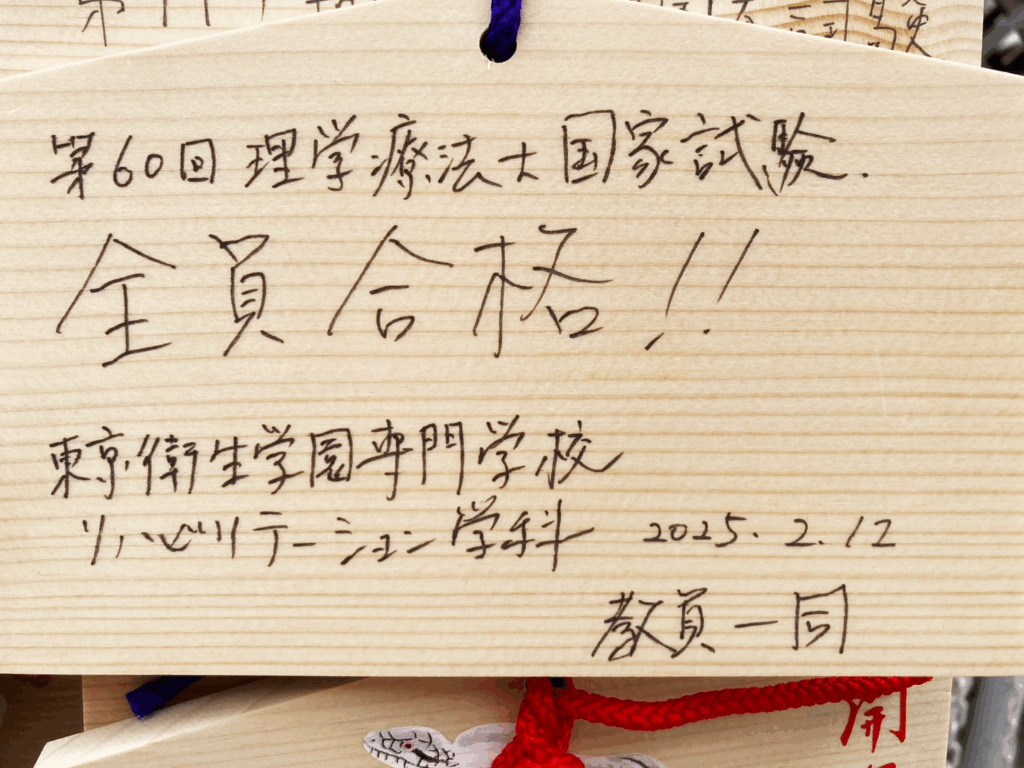 第60回 理学療法士国家試験.
全員合格!!
東京衛生学園専門学校
リハビリテーション学科 2025.2.12
教員一同
開